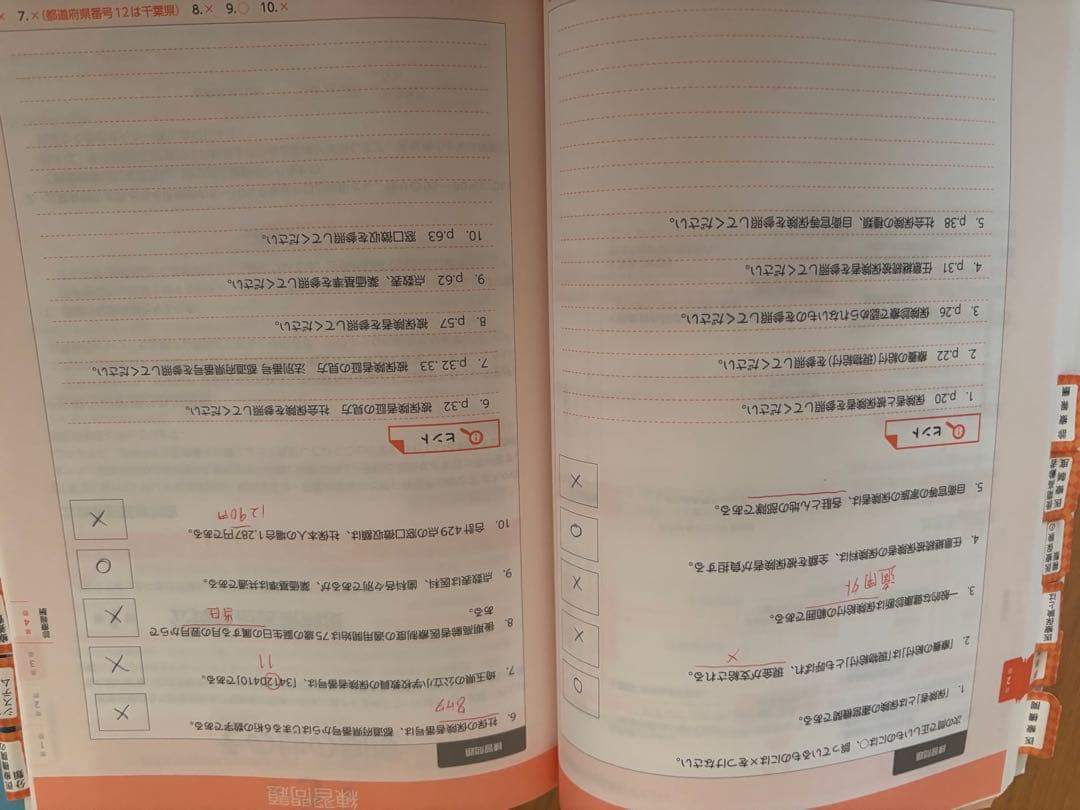 練習問題
練習問題
次の問で正しいものには○、誤っているものには×をつけなさい。
1. 「保険者」とは保険の運営機関である。
○
2. 「療養の給付」は「現物給付」とも呼ばれ、現金が支給される。
×
×
3. 一般的な健康診断は保険給付の範囲である。
適用外
×
4. 任意継続被保険者の保険料は、全額を被保険者が負担する。
○
5. 自衛官等の家族の保険者は、各駐とん地の部隊である。
×
ヒント
1. p.20 保険者と被保険者を参照してください。
2. p.22 療養の給付(現物給付)を参照してください。
3. p.26 保険診療で認められないものを参照してください。
4. p.31 任意継続被保険者を参照してください。
5. p.38 社会保険の種類、自衛官等保険を参照してください。
練習問題
6. 社保の保険者番号は、都道府県番号からはじまる6桁の数字である。
8ケタ
×
7. 埼玉県の公立小学校教員の保険者番号は、「34120410」である。
11
×
8. 後期高齢者医療制度の適用開始は75歳の誕生日の属する月の翌月からで
ある。
当日
×
9. 点数表は医科、歯科各々別であるが、薬価基準は共通である。
○
10. 合計429点の窓口徴収額は、社保本人の場合1,287円である。
1290円
×
ヒント
6. p.32 被保険者証の見方 社会保険を参照してください。
7. p.32、33 被保険者証の見方 法別番号 都道府県番号を参照してください。
8. p.57 被保険者を参照してください。
9. p.62 点数表、薬価基準を参照してください。
10. p.63 窓口徴収を参照してください。
7.×(都道府県番号12は千葉県) 8.× 9.○ 10.×
第2章
医療機関
医療保険とは
診療報酬
第1章
第2章
第3章
第4章
診療報酬
システム